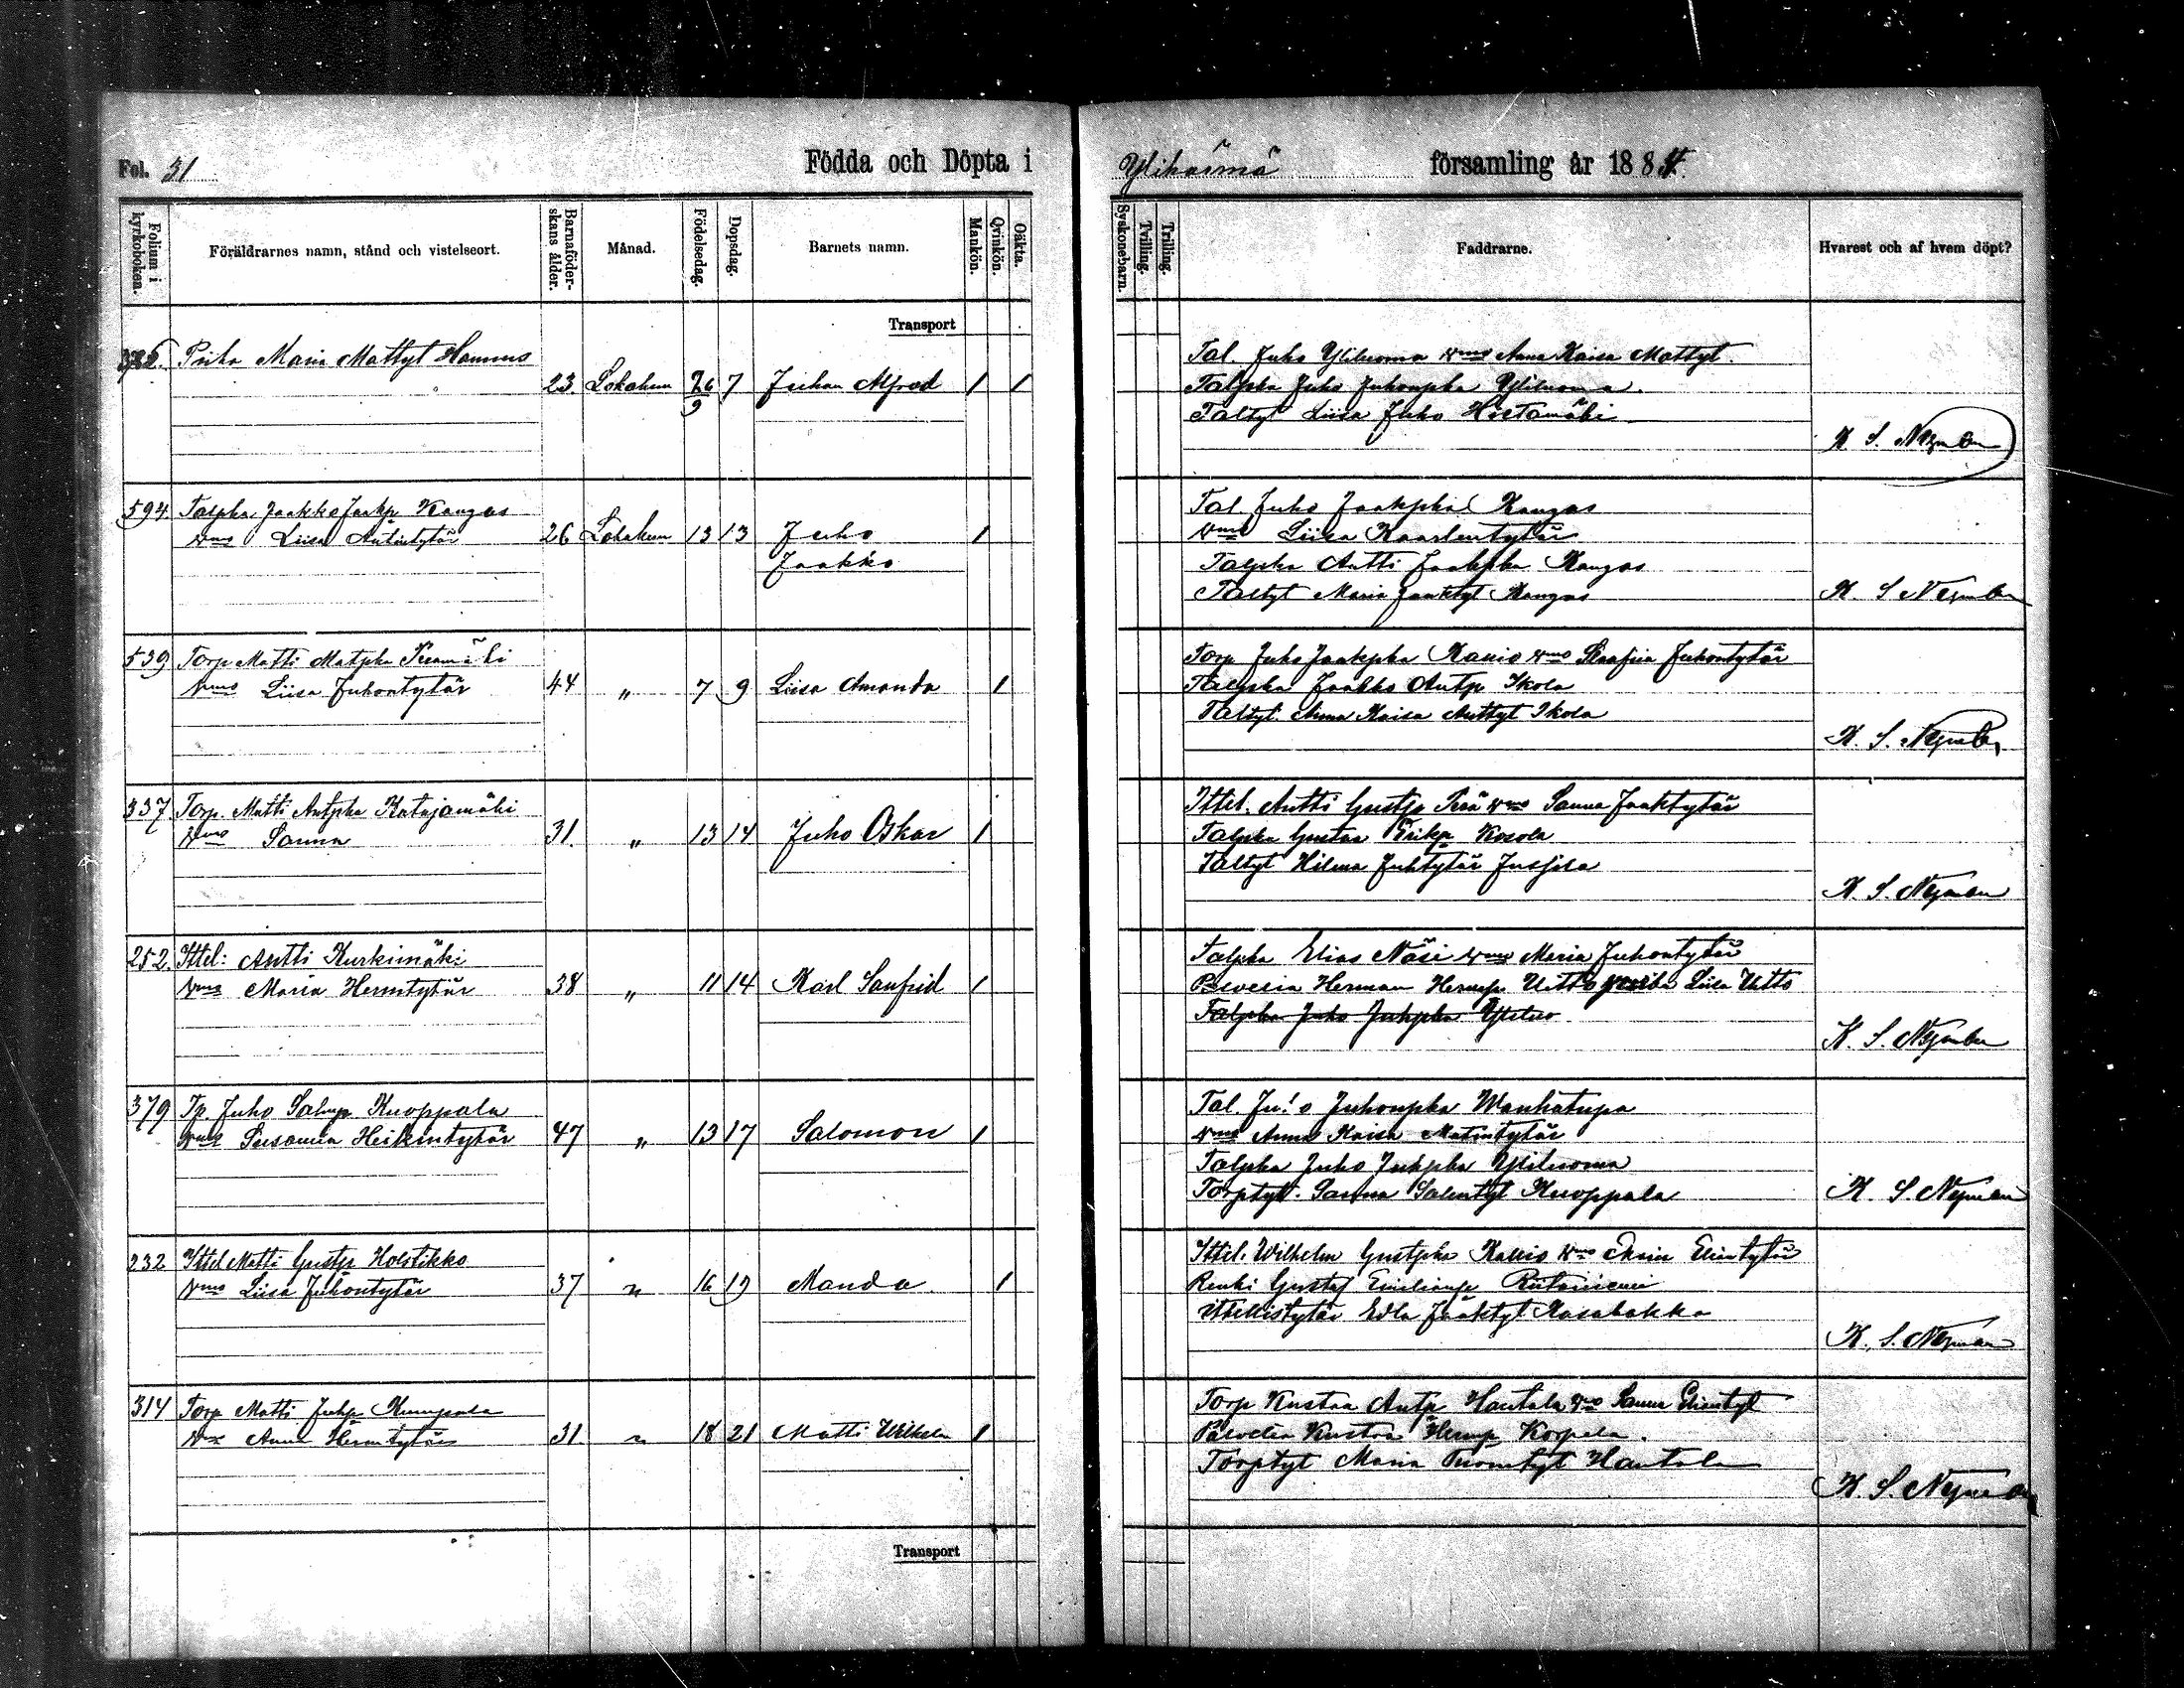 Fol. 31 Födda och Döpta i
Folium i kyrkoboken.
Föräldrarnes namn, stånd och vistelseort.
Barnaföderskans ålder.
Månad.
Födelsedag.
Dopsdag.
Barnets namn.
Mankön.
Qvinkön.
Oäkta.
Transport
Piika Maria Mattyt Hannus
23. Lokakuu 26/9 7 Juhan Alfred 1 1
594 Talpka Jaakko Jaakp Kangas
Vmo Liisa Antintytär 26 Lokakuu 13 13 Juho 1
Jaakko
539 Torp Matti Matpka
Vmo Liisa Juhontytär 44 " 7 9 Liisa Amanda 1
337 Torp. Matti Antpka Katajamäki
Vmo Sanna 31. " 13 14 Juho Oskar 1
252. Ittel: Antti Kurkimäki
Vmo Maria Hermtytär 38 " 11 14 Karl Sanfrid 1
379 Tp. Juho Salmp Kuoppala
Vmo Susanna Heikintytär 47 " 13 17 Salomon 1
232 Ittel Matti Gustp Holstikko
Vmo Liisa Juhontytär 37 " 16 19 Manda 1
314 Torp Matti Juhp Kumpula
Vmo Anna Hermtytär 31. " 18 21 Matti Wilhelm 1
Transport
Ylihärmä församling år 1884.
Syskonebarn.
Tvilling.
Trilling.
Faddrarne.
Hvarest och af hvem döpt?
Tal. Juho Yliluoma Vmo Anna Kaisa Mattyt.
Talpka Juho Juhonpka Yliluoma.
Taltyt Liisa Juho Hietamäki
K. S. Nyman
Tal. Juho Jaakpka Kangas
Vmo Liisa Kaarlentytär
Talpka Antti Jaakpka Kangas
Taltyt Maria Jaaktyt Kangas
K. S. Nyman
Torp Juho Jaakpka Kallio Vmo Serafia Juhontytär
Talpka Jaakko Antp Ikola
Taltyt. Anna Kaisa Anttyt Ikola
K. S. Nyman
Ittel. Antti Gustp Perä Vmo Sanna Jaaktytär
Talpka Gustaa Erikp Kosola
Taltyt Hilma Juhtytär Jussila
K. S. Nyman
Talpka Elias Näsi Vmo Maria Juhontytär
Herman Hermp Uitto Piika Liisa Uitto
Talpka Juho Juhpka Yliluo
K. S. Nyman
Tal. Juho Juhonpka Wanhatupa
Vmo Anna Kaisa Matintytär
Talpka Juho Juhpka Yliluoma
Torptyt. Sanna Salmtyt Kuoppala
K. S. Nyman
Ittel. Wilhelm Gustpka Kallio Vmo Maria Elientytär
Renki Gustaf
Ittellistytär Edla Jaaktyt Kasabakka
K. S. Nyman
Torp Kustaa Antp Hantala Vmo Sanna Elientyt
Palvelia Kustaa Hermp Korpela.
Torptyt Maria Tuomtyt Hantala
K. S. Nyman